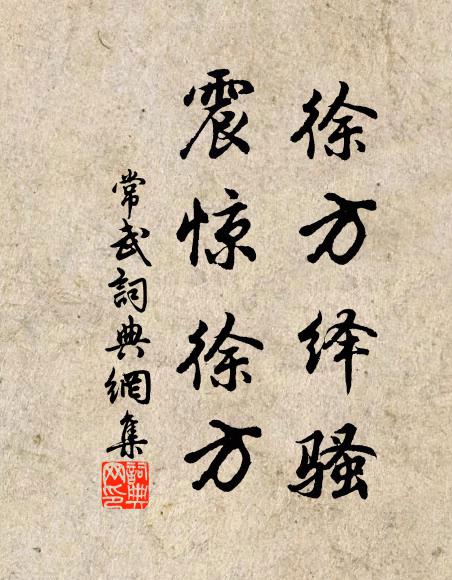 徐方绎骚
震惊徐方
常武詞典網集
詞典网印